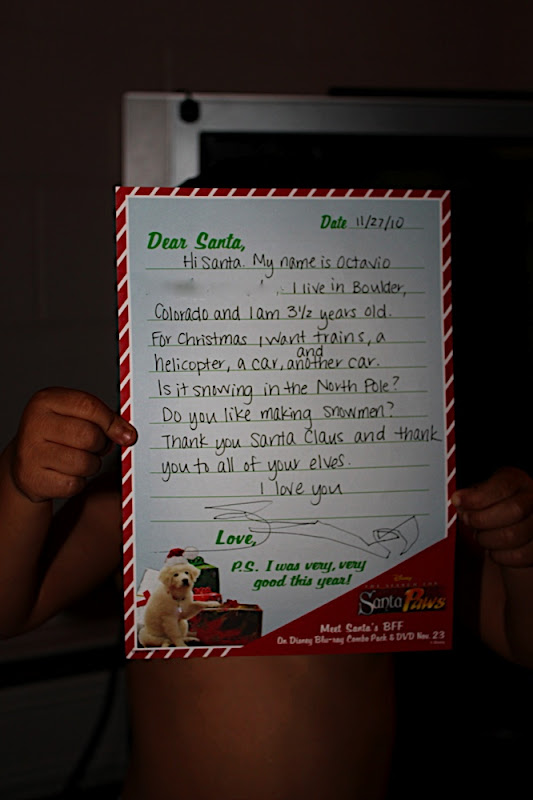 Date 11/27/10
Dear Santa,
Hi Santa. My name is Octavio
. I live in Boulder,
Colorado and I am 3 1/2 years old.
For Christmas I want trains, a
helicopter, a car, and another car.
Is it snowing in the North Pole?
Do you like making snowmen?
Thank you Santa Claus and thank
you to all of your elves.
I love you
Love,
P.S. I was very, very
good this year!
Disney
THE SEARCH FOR
Santa Paws
Meet Santa's BFF
On Disney Blu-ray Combo Pack & DVD Nov. 23